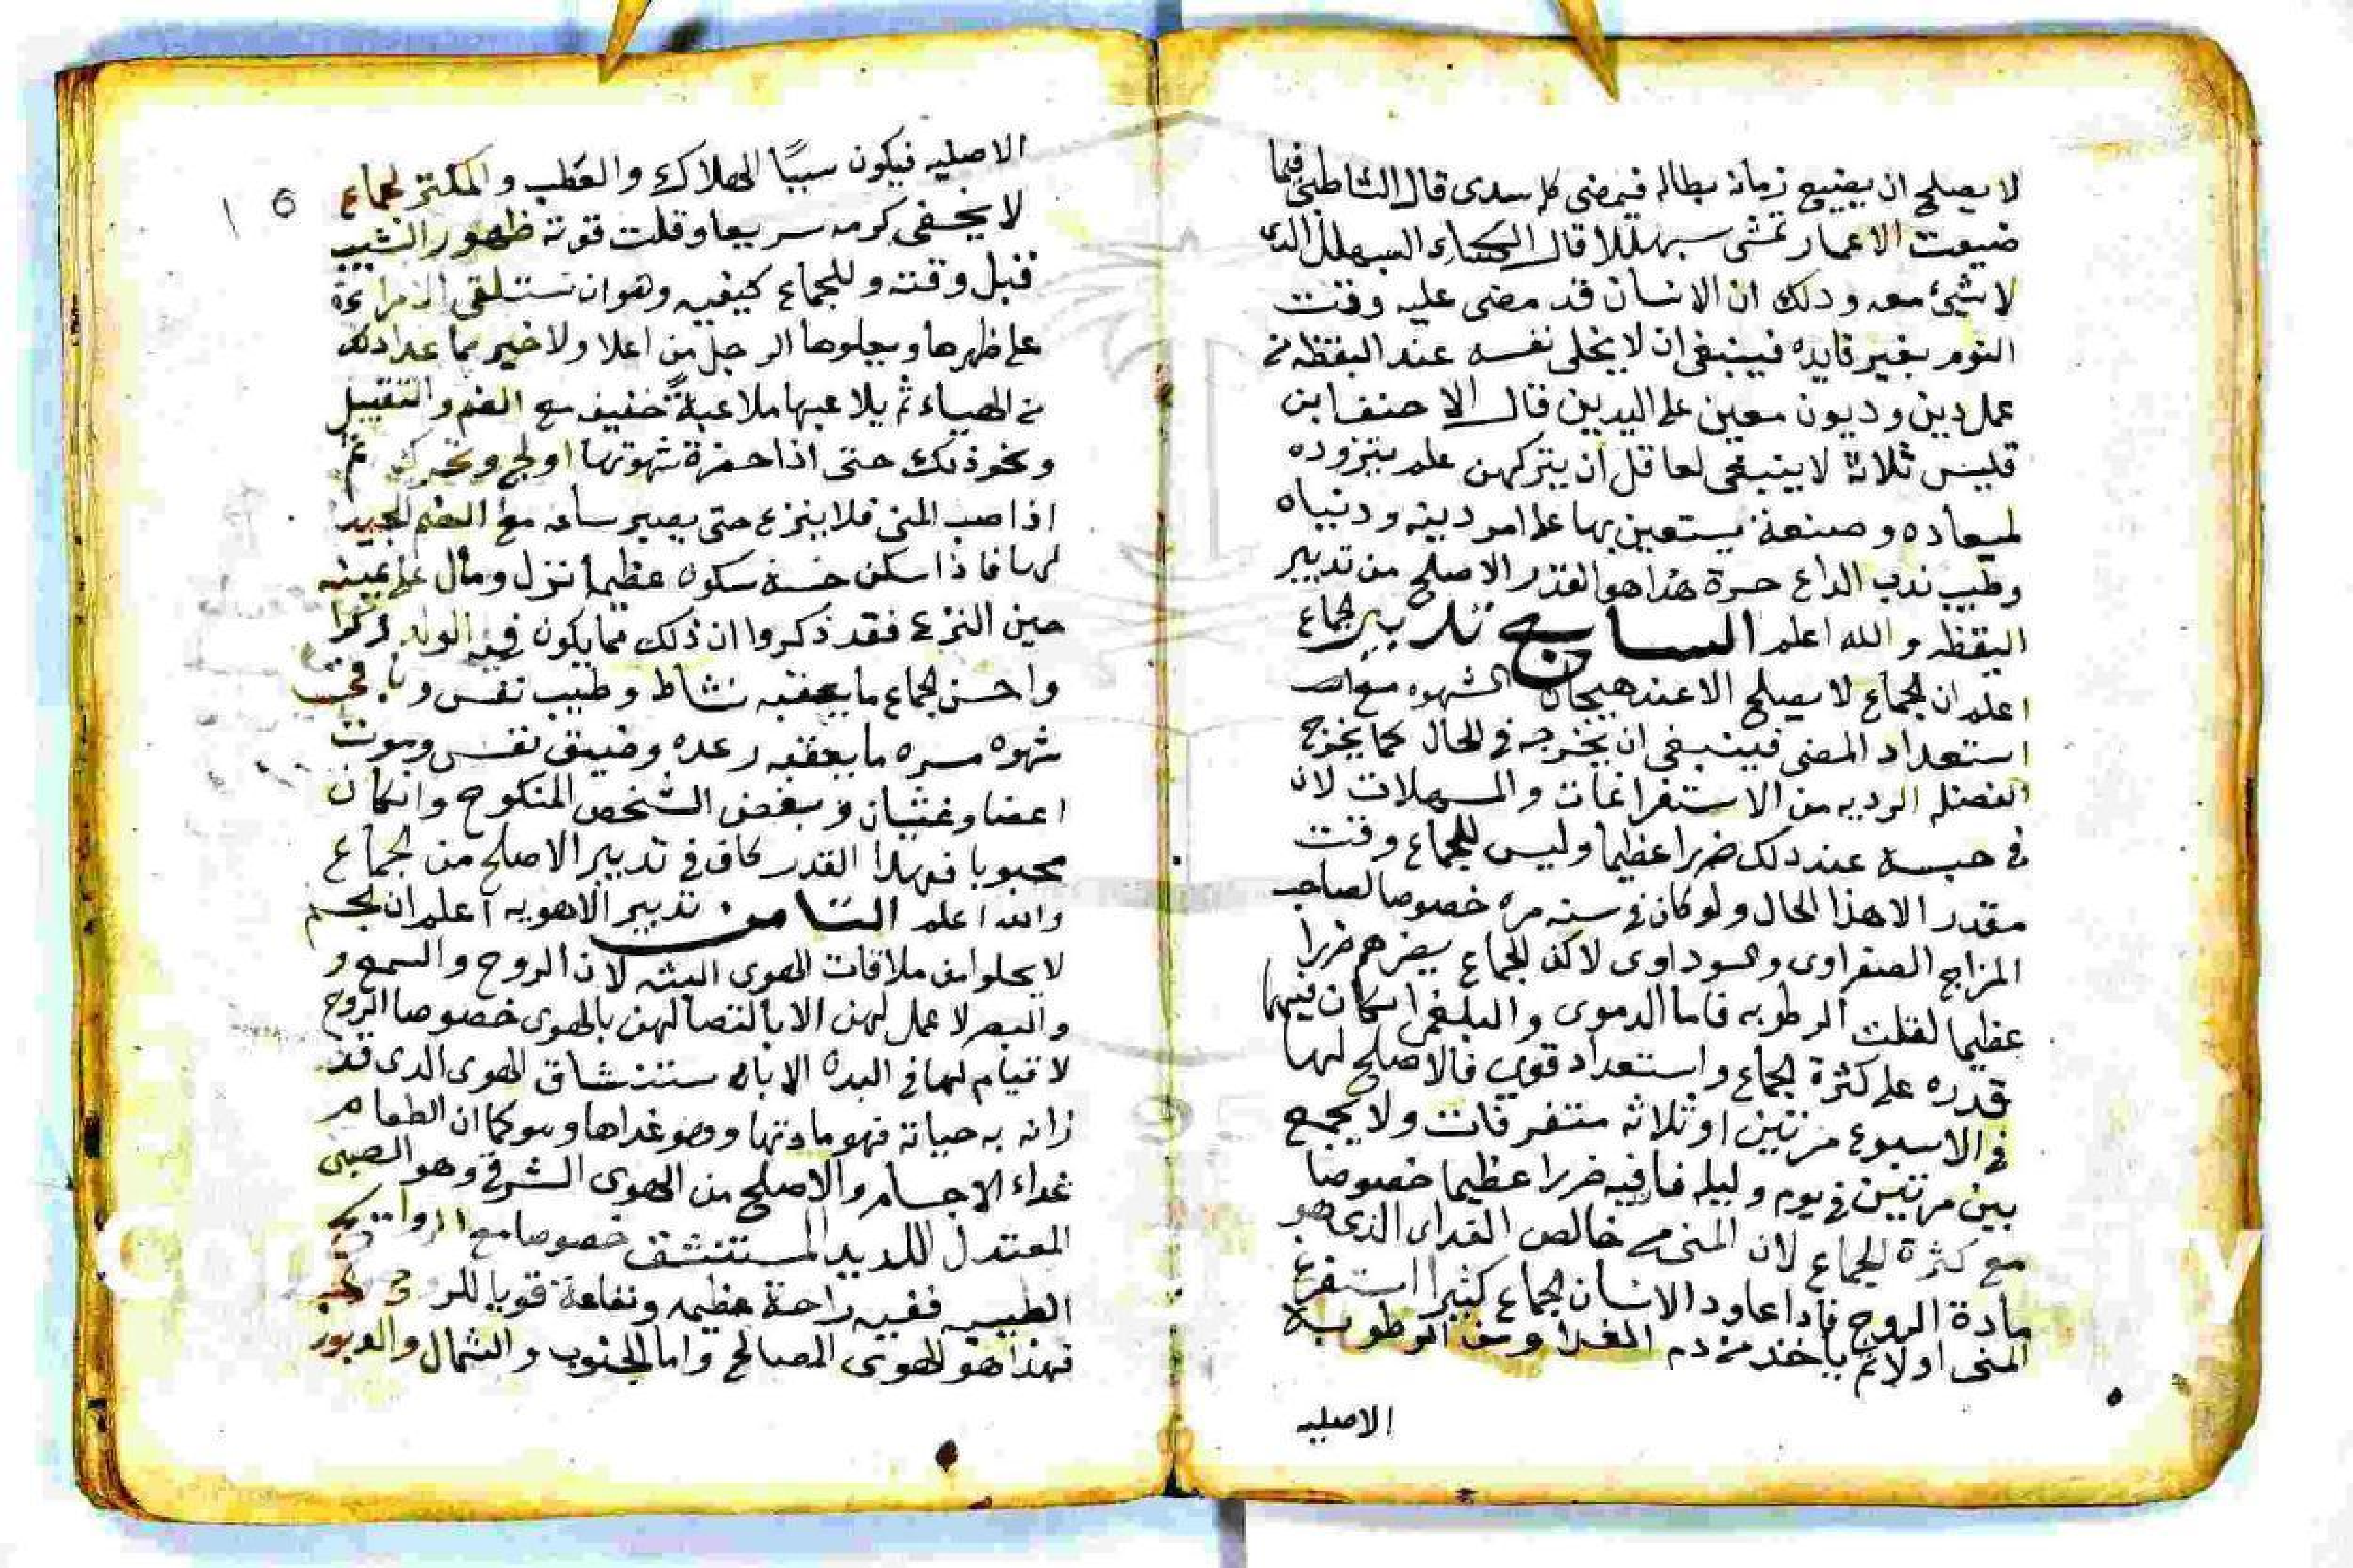 لا يصلح ان يضيع زمانه بطاله فيمضى كله سدى قال الشاطبى فيما
ضيعت الاعمار تمشى سبهللا قال الكسائى السبهلل الدى
لا شئ معه ودلك ان الانسان قد مضى عليه وقت
النوم بغير فايده فينبغى ان لا يخلى نفسه عند اليقظه من
عمل دين وديون معين على اليدين قال الاحنف ابن
قليس ثلاثة لا ينبغى لعاقل ان يتركهن علم يتزوده
لميعاده وصنعة يستعين بها على امر دينه ودنياه
وطبيب ندب الداع حرة هذا هو القدر الاصلح من تدبير
اليقظه والله اعلم السابع تدبير الجماع
اعلم ان الجماع لا يصلح الا عند هيجان الشهوه مع
استعداد المنى فينبغى ان يخرجه فى الحال كما يخرج
الفضله الرديه من الاستفراغات والمسهلات لان
فى حبسه عند دلك ضررا عظيما وليس للجماع وقت
مقدر الا هذا الحال ولو كان فى سنه مره خصوصا لصاحب
المزاج الصفراوى والسوداوى لاكن الجماع يضرهم ضررا
عظيما لقلت الرطوبه فاما الدموى والبلغمى ان كان فيهما
قدره على كثرة الجماع واستعداد قوى فالاصلح لهما
فى الاسبوع مرتين او ثلاثه متفرقات ولا يجمع
بين مرتين فى يوم وليله فافيه ضررا عظيما خصوصا
مع كثرة الجماع لان المنى من خالص الغداى الذى هو
مادة الروح فادا عاود الانسان الجماع كثيرا استفرغ
المنى اولا ثم ياخذ من دم الغدا ومن الرطوبة
الاصليه
الاصليه فيكون سببا الى الهلاك والعطب والمكثر الجماع
لا يخفى كرمه سريعا وقلت قوته ظهور الشيب
قبل وقته وللجماع كيفيه وهو ان تستلقى المراءة
على ظهرها ويعلوها الرجل من اعلا ولا خير بما عدا دلك
من الهياء ثم يلاعبها ملاعبةً خفيف مع الضم والتقبيل
ونحو ذلك حتى اذا حضرة شهوتها اولج وتحرك ثم
اذا صب المنى فلا ينزع حتى يصير ساعه مع الضم الجيد
لها فاذا سكن حسه سكوه عظيما نزل ومال على يمينه
حين النزع فقد ذكروا ان ذلك مما يكون فيه الولد ذكرا
واحسن الجماع ما يعقبه نشاط وطيب نفس و
شهوه مسره ما يعقبه رعده وضيق نفس وموت
اعضا وغثيان وبغض الشخص المنكوح وانكان
محبوبا فهدا القدر كاف فى تدبير الاصلح من الجماع
والله اعلم التامن تدبير الاهويه اعلم ان الجسم
لا يخلوا من ملاقات الهوى البته لان الروح والسمع و
والبصر لا عمل لهن الا بالتصالهن بالهوى خصوصا الروح
لا قيام لها فى البدن الا باه ستنشاق الهوى الدى قد
زانه به حياته فهو مادتها وهو غداها وهو كما ان الطعام
غداء الاجسام والاصلح من الهوى الشرقى وهو الصبى
المعتدل اللديد المستنشق خصوصا مع الروائح
الطيبه ففيه راحة عظيمه ونفاعة قويا للروح
فهذا هو الهوى الصالح واما الجنوب والشمال والدبور